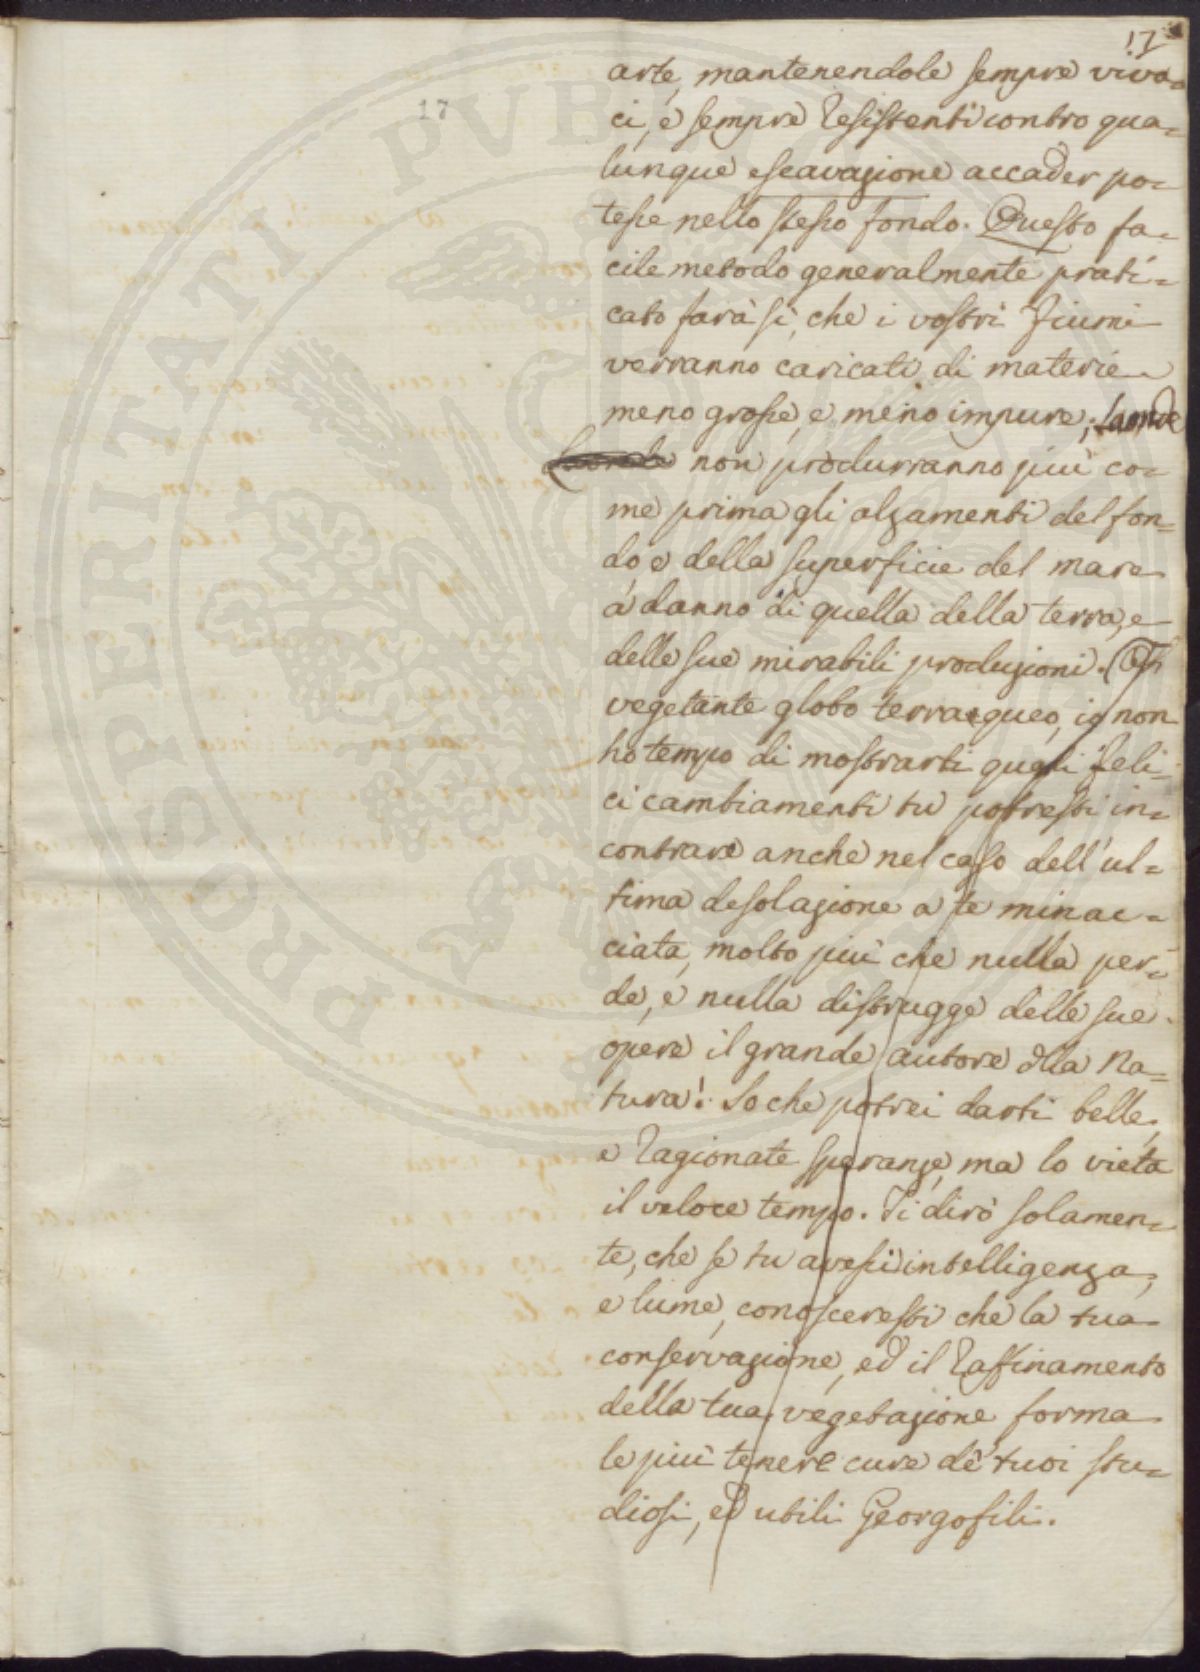 17
17
arte, mantenendole sempre viva=
ci, e sempre resistenti contro qua=
lunque escavazione accader po=
tesse nello stesso fondo. Questo fa=
cile metodo generalmente prati=
cato farà sì, che i vostri Fiumi
verranno caricati di materie
meno grosse, e meno impure; laonde
non produrranno più co=
me prima gli alzamenti del fon=
do e della superficie del mare
à danno di quella della terra, e
delle sue mirabili produzioni. Oh
vegetante globo terraqueo, io non
ho tempo di mostrarti quali feli=
ci cambiamenti tu potresti in=
contrare anche nel caso dell'ul=
tima desolazione a te minac=
ciata, molto più che nulla per=
de, e nulla distrugge delle sue
opere il grande autore dlla Na=
tura! So che potrei darti belle,
e ragionate speranze, ma lo vieta
il veloce tempo. Ti dirò solamen=
te, che se tu avessi intelligenza,
e lume, conosceresti che la tua
conservazione, ed il raffinamento
della tua vegetazione forma
le più tenere cure de' tuoi stu=
diosi, ed utili Georgofili.
PROSPERITATI PUBLICAE